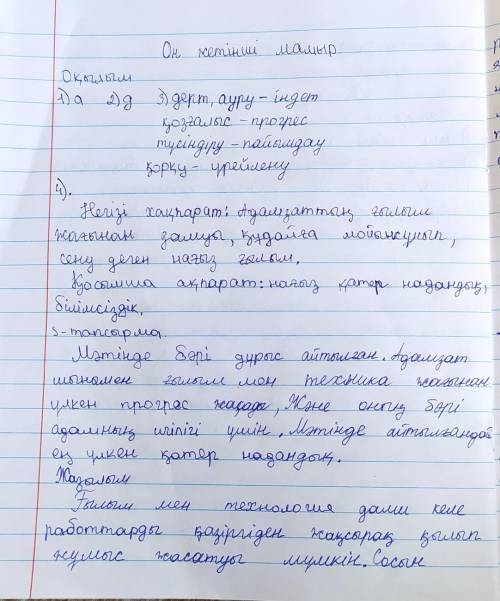 Он жетінші мамыр
Оқылым
1) а 2) д 3) дерт, ауру - індет
қозғалыс - прогрес
түсіндіру - пайымдау
қорқу - үрейлену
4).
Негізі хақпарат: Адамзаттың ғылым
жағынан дамуы, құдайға мойынсұнып,
сену деген нағыз ғылым.
Қосымша ақпарат: нағыз қатер надандық,
білімсіздік.
5-тапсырма.
Мәтінде бәрі дұрыс айтылған. Адамзат
шынымен ғылым мен техника жағынан
үлкен прогрес жасады, Және оның бәрі
адамның игілігі үшін. Мәтінде айтылғандай
ең үлкен қатер надандық.
Жазылым
Ғылым мен технология дами келе
работтарды қазіргіден жақсырақ қылып
жұмыс жасатуы мүмкін. Сосын